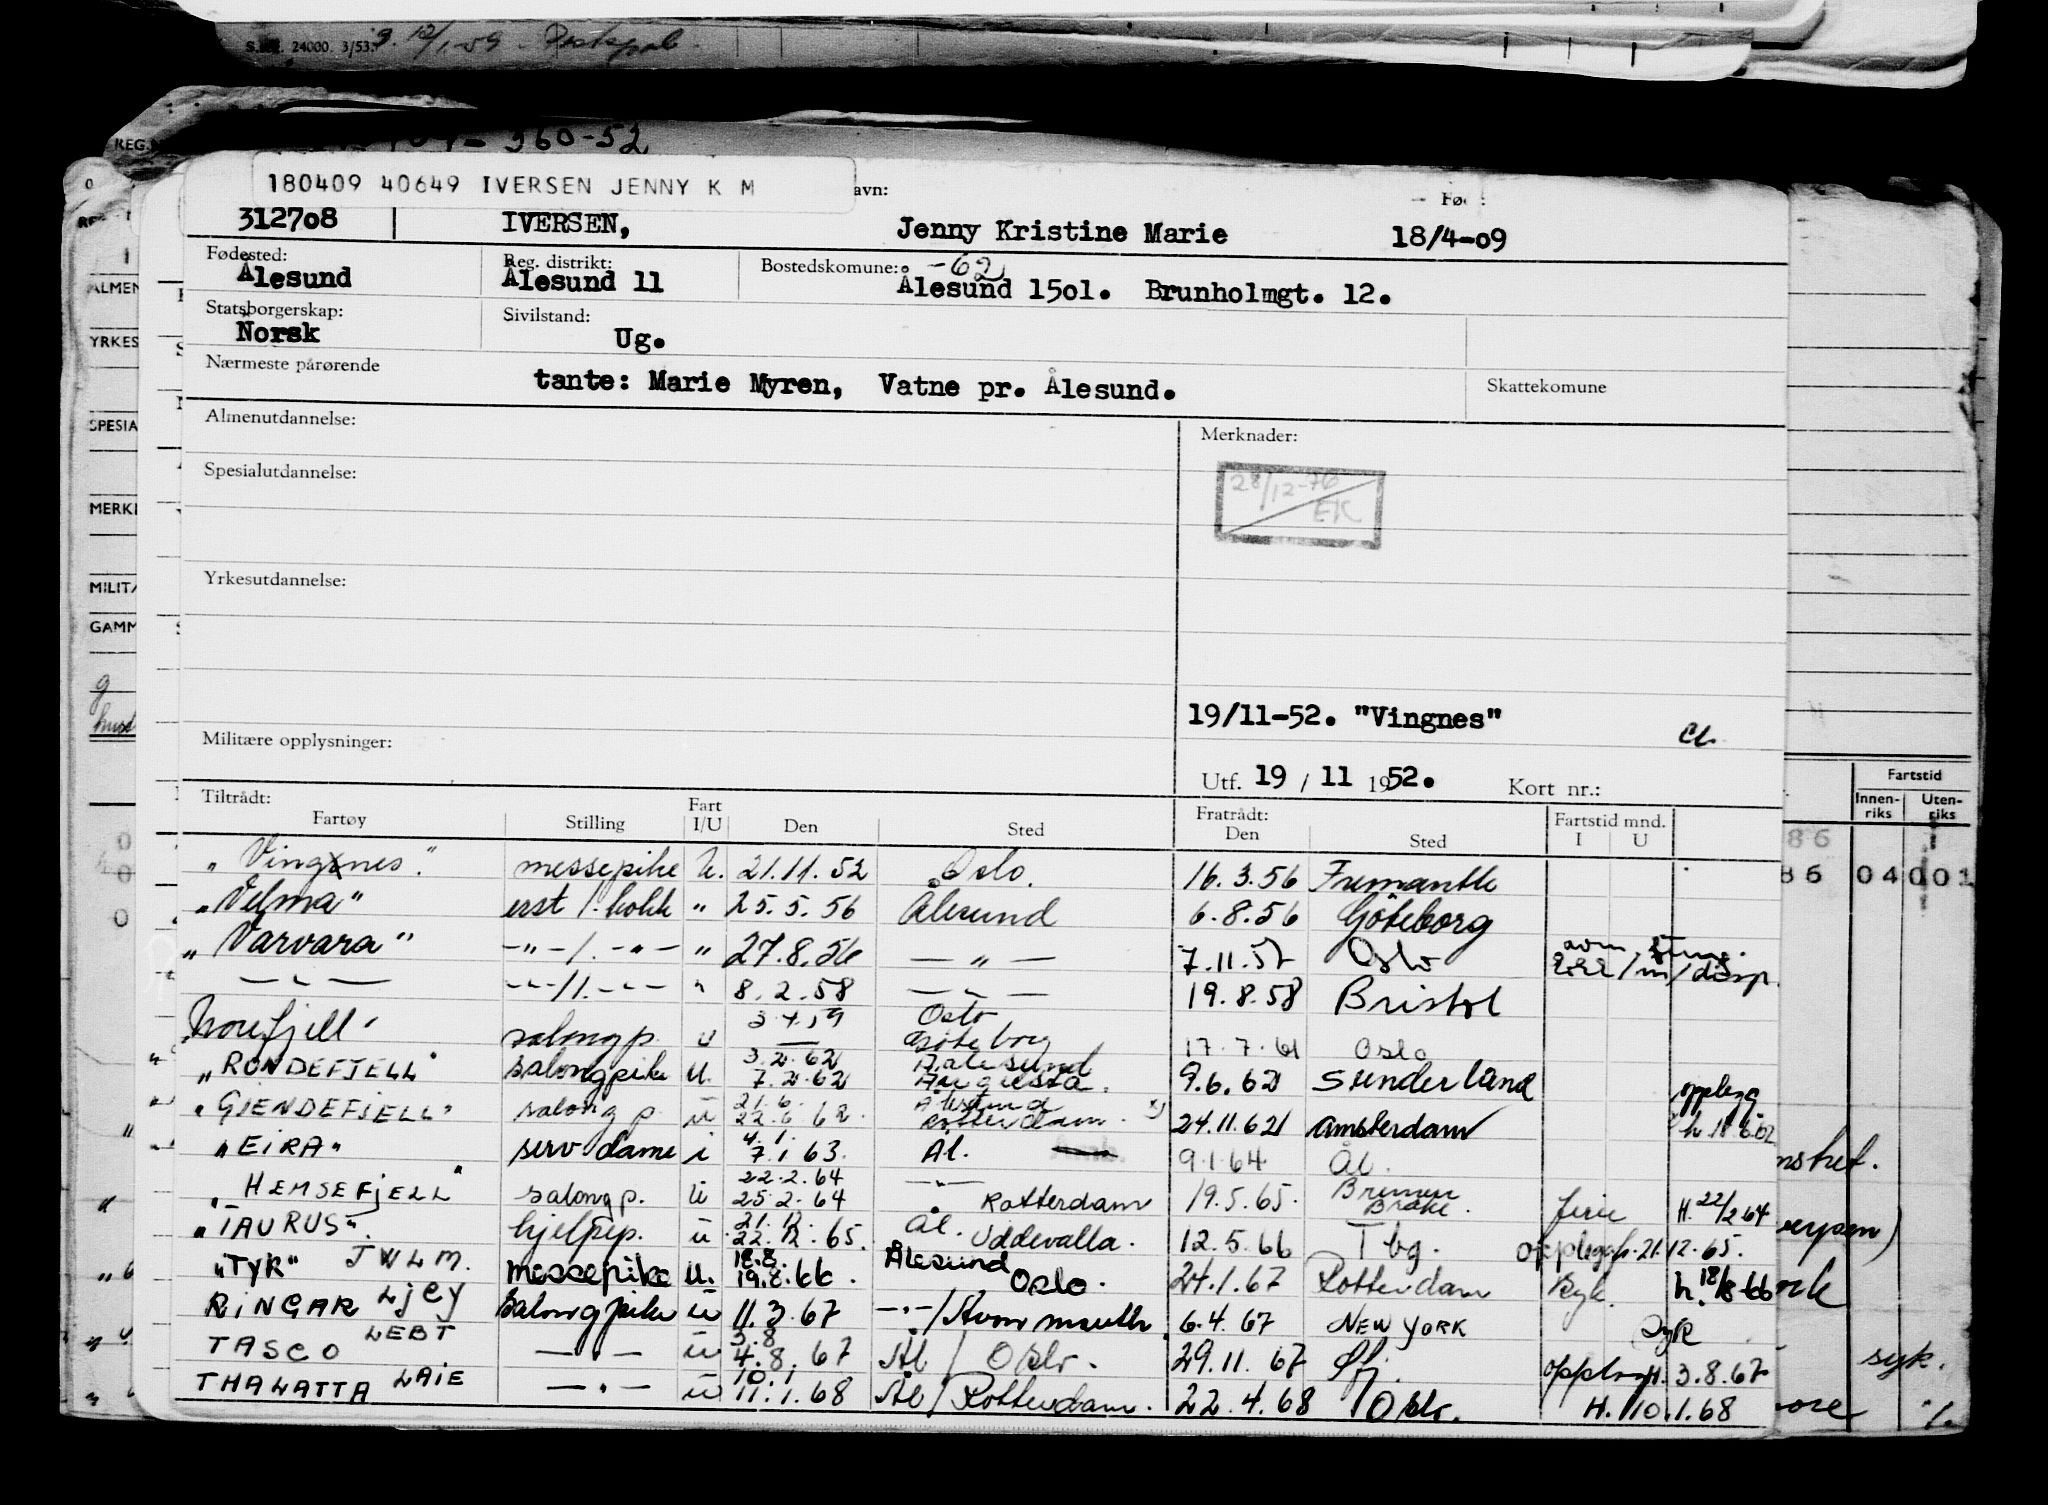 S. 24000. 3/53.
REG.N 360-52
180409 40649 IVERSEN JENNY K M avn: Fø
312708 IVERSEN, Jenny Kristine Marie 18/4-09
Fødested: Reg. distrikt: Bostedskomune: -62
Ålesund Ålesund 11 Ålesund 1501. Brunholmgt. 12.
Statsborgerskap: Sivilstand:
Norsk Ug.
Nærmeste pårørende
tante: Marie Myren, Vatne pr. Ålesund. Skattekomune
Almenutdannelse: Merknader:
Spesialutdannelse: 28/12-76 EK
Yrkesutdannelse:
19/11-52. "Vingnes"
Militære opplysninger:
Utf. 19 / 11 1952. Kort nr.:
Tiltrådt: Fratrådt: Fartstid mnd.
Fartøy Stilling Fart I/U Den Sted Den Sted I U
Fartstid
Innenriks Utenriks
"Vingnes" messepike u. 21.11.52 Oslo. 16.3.56 Fremantle
"Velma" erst 1. kokk " 25.5.56 Ålesund 6.8.56 Göteborg
"Varvara" -"-/.-"- " 27.8.56 -"- 7.11.57 Oslo
-"- -"-/1.-"- " 8.2.58 -"- 19.8.58 Bristol
Norefjell" salongp. u 3.4.59 Oslo Göteborg 17.7.61 Oslo
"RONDEFJELL" salongpike u. 3.2.62 7.2.62 Aalesund Augusta. 9.6.62 Sunderland
"GJENDEFJELL" salong p. u 21.6. 22.6.62 Ålesund Rotterdam. 24.11.62 Amsterdam opplegg
"EIRA" serv dame i 4.1. 7.1.63. Ål. 9.1.64 Ål.
"HEMSEFJELL" salongp. u 22.2.64 25.2.64 -"- Rotterdam 19.5.65. Bremen Brake. ferie H. 22/2 64
"TAURUS". hjelpep. u 21.12. 22.12.65. Ål. Uddevalla. 12.5.66 Tbg. opplegg h. 21.12.65.
"TYR" JWLM. messepike u. 18.8. 19.8.66. Ålesund Oslo. 24.1.67 Rotterdam syk. h. 18/8-66
RINGAR LJCY Salongpike u 11.3.67 -"-/Avonmouth 6.4.67 NEW YORK syk
TASCO LEBT -"- u 3.8 4.8.67 Ål / Oslo. 29.11.67 Sfj. oppl H. 3.8.67 syk.
THALATTA LAIE -"- u 10.1 11.1.68 Ål/Rotterdam. 22.4.68 Oslo. H. 10.1.68